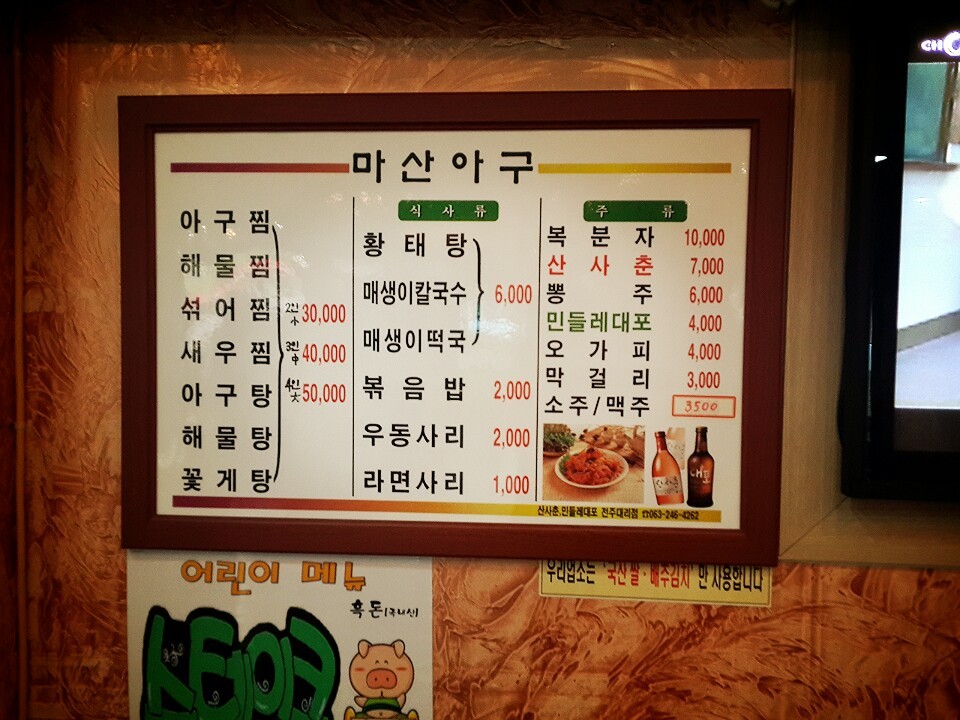 마산아구
아구찜
해물찜
섞어찜
새우찜
아구탕
해물탕
꽃게탕
2인 小 30,000
3인 中 40,000
4인 大 50,000
식사류
황태탕
매생이칼국수
매생이떡국
6,000
볶음밥 2,000
우동사리 2,000
라면사리 1,000
주류
복분자 10,000
산사춘 7,000
뽕주 6,000
민들레대포 4,000
오가피 4,000
막걸리 3,000
소주/맥주 3500
산사춘
대포
산사춘,민들레대포 전주대리점 ☎063-246-4262
어린이 메뉴
흑돈(국내산)
스테이크
우리업소는 '국산 쌀·배추김치' 만 사용합니다
CH